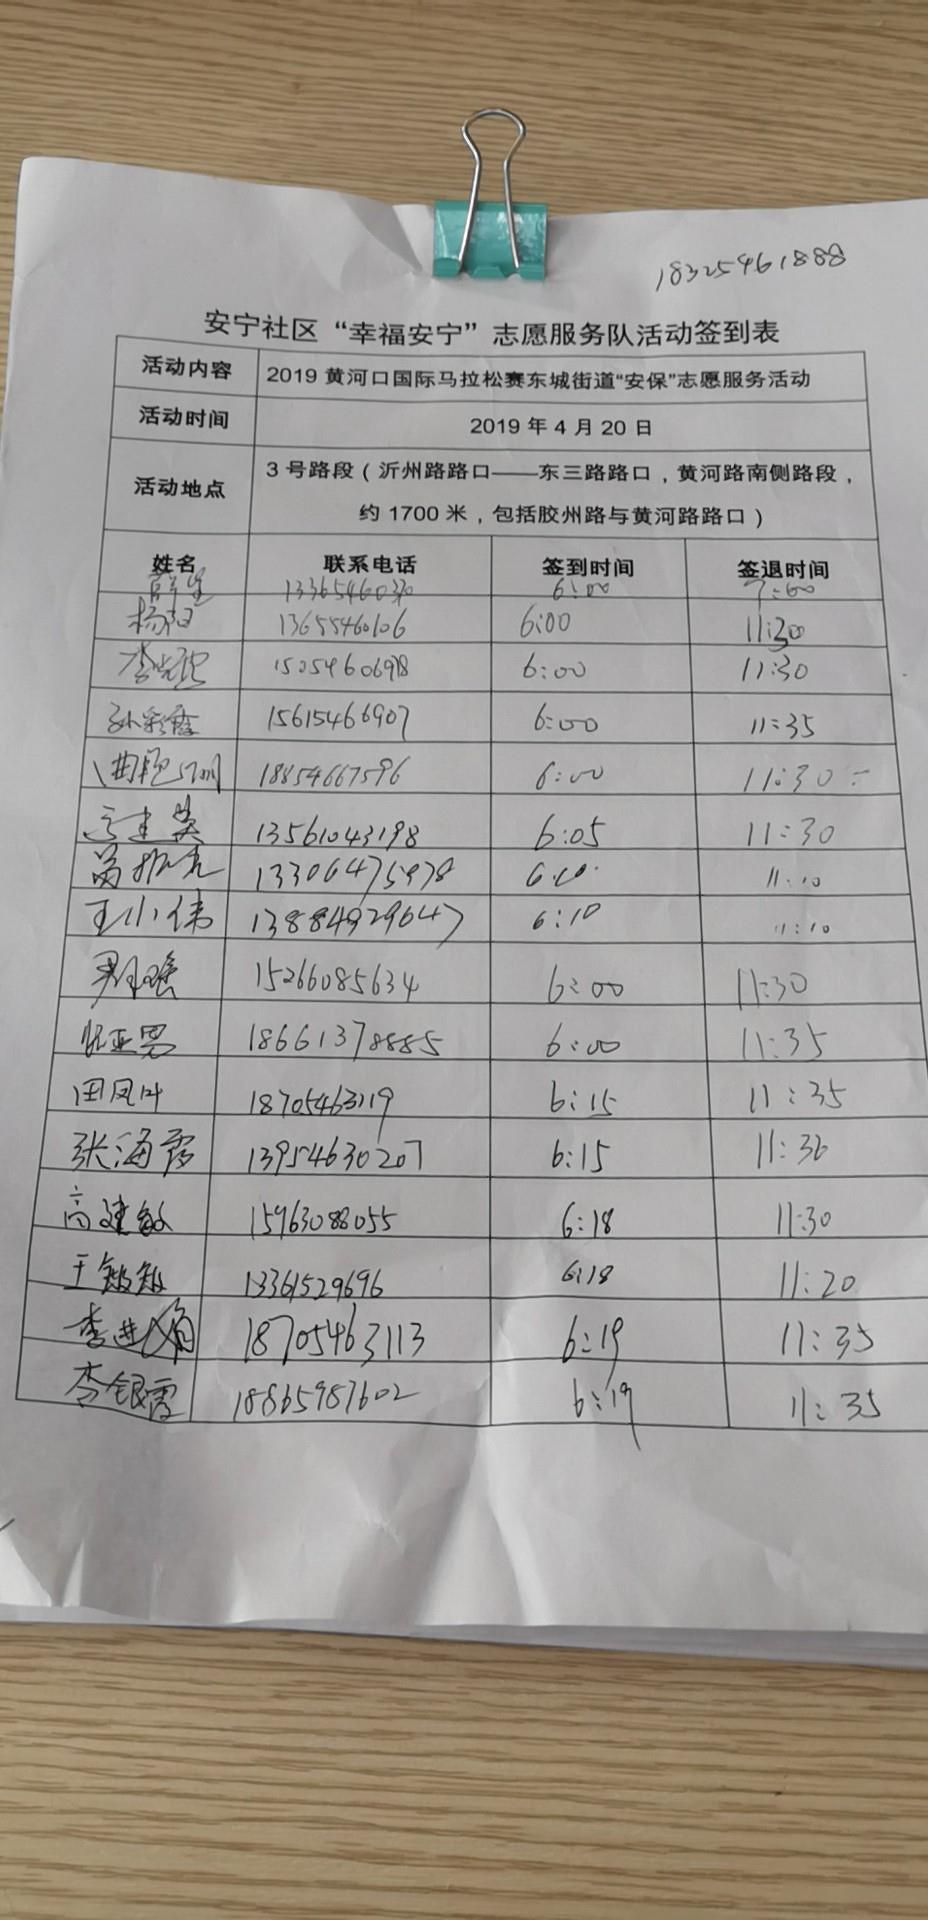 18325461888
安宁社区“幸福安宁”志愿服务队活动签到表
活动内容 2019 黄河口国际马拉松赛东城街道“安保”志愿服务活动
活动时间 2019 年 4 月 20 日
活动地点 3 号路段（沂州路路口——东三路路口，黄河路南侧路段，
约 1700 米，包括胶州路与黄河路路口）
姓名 联系电话 签到时间 签退时间
6:00
杨阳 13655460106 6:00 11:30
15054606978 6:00 11:30
孙彩霞 15615466907 6:00 11:35
18854667596 6:00 11:30
13561043198 6:05 11:30
13306475978 6:10 11:10
王小伟 13884929647 6:10 11:10
15266085634 6:00 11:30
张亚男 18661378885 6:00 11:35
田凤叶 18705463119 6:15 11:35
张海霞 13954630207 6:15 11:30
高建敏 15963088055 6:18 11:30
王敏敏 13361529696 6:18 11:20
李进娟 18705463113 6:19 11:35
李银霞 18865987602 6:19 11:35